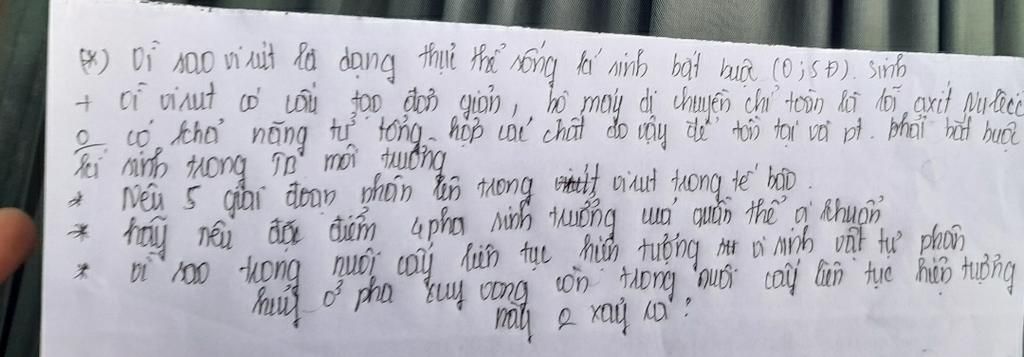 *) Vì sao virút là dạng thực thể sống kí sinh bắt buộc (0,5 Đ). Sinh
+ vì virut có cấu tạo đơn giản, bộ máy di chuyển chỉ toàn là lõi axit Nucleic
0 có khả năng tự tổng hợp các chất do vậy để tồn tại và pt. phải bắt buộc
kí sinh trong TB môi trường
* Nêu 5 giai đoạn nhân lên trong virut trong tế bào.
* hãy nêu đặc điểm 4 pha sinh trưởng của quần thể vi khuẩn
* vì sao trong nuôi cấy liên tục hiện tượng vi sinh vật tự phân
hủy ở pha suy vong còn trong nuôi cấy liên tục hiện tượng
này 0 xảy ra?